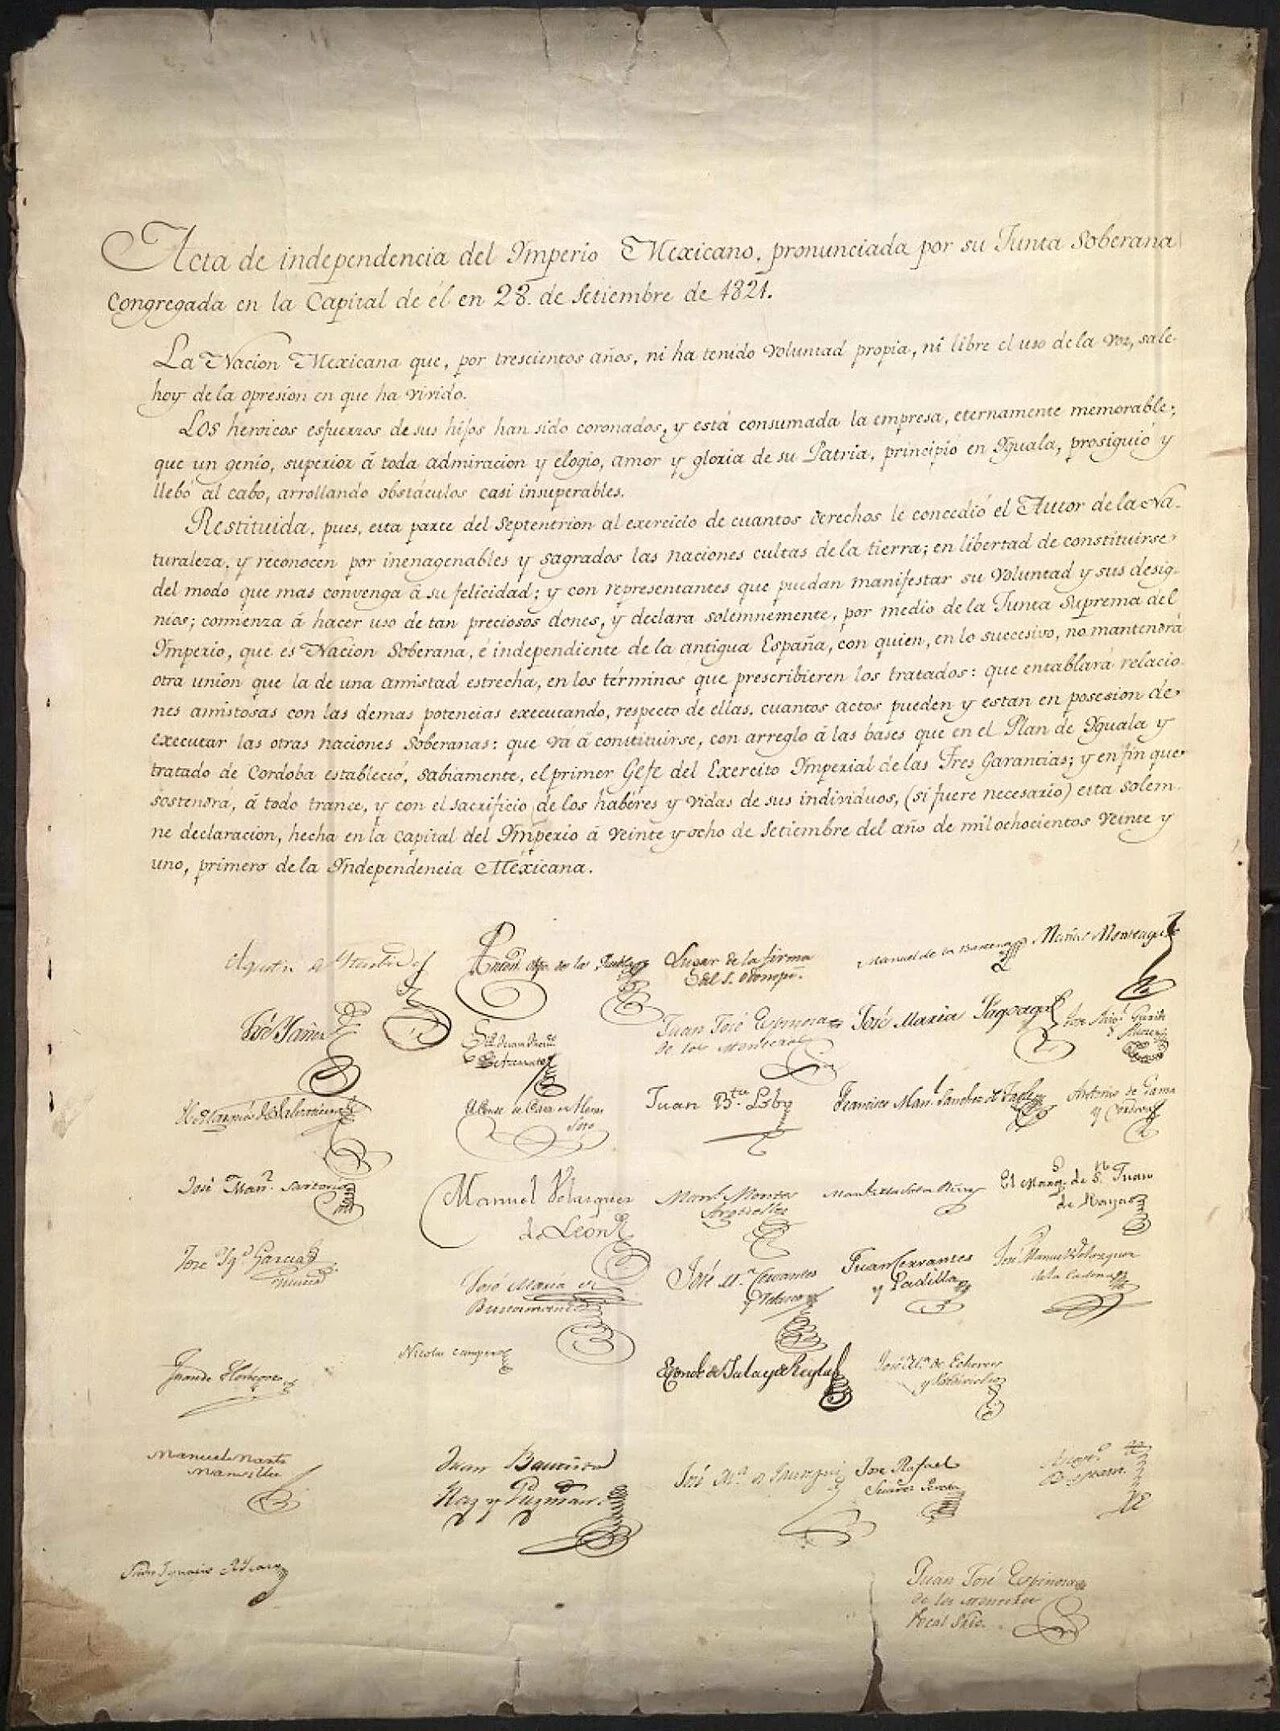 Acta de independencia del Ymperio Mexicano, pronunciada por su Junta Soberana
Congregada en la Capital de él en 28. de Setiembre de 1821.
La Nacion Mexicana que, por trescientos años, ni ha tenido voluntad propia, ni libre el uso de la voz, sale
hoy de la opresion en que ha vivido.
Los heroicos esfuerzos de sus hijos han sido coronados, y está consumada la empresa, eternamente memorable,
que un genio, superior á toda admiracion y elogio, amor y gloria de su Patria, principió en Yguala, prosiguió y
llebó al cabo, arrollando obstáculos casi insuperables.
Restituida, pues, esta parte del Septentrion al exercicio de cuantos derechos le concedió el Autor de la Na-
turaleza, y reconocen por inenagenables y sagrados las naciones cultas de la tierra; en libertad de constituirse
del modo que mas convenga á su felicidad; y con representantes que puedan manifestar su voluntad y sus desig-
nios; comienza á hacer uso de tan preciosos dones, y declara solemnemente, por medio de la Junta Suprema del
Ymperio, que es Nacion Soberana, é independiente de la antigua España, con quien, en lo succesivo, no mantendrá
otra union que la de una amistad estrecha, en los términos que prescribieren los tratados: que entablará relacio-
nes amistosas con las demas potencias executando, respecto de ellas, cuantos actos pueden y estan en posesion de
executar las otras naciones Soberanas: que vá á constituirse, con arreglo á las bases que en el Plan de Yguala y
tratado de Cordoba estableció, sabiamente, el primer Gefe del Exercito Ymperial de las Tres Garantias; y en fin que
sostendrá, á todo trance, y con el sacrificio de los haberes y vidas de sus individuos, (si fuere necesario) esta solem-
ne declaracion, hecha en la capital del Ymperio á veinte y ocho de Setiembre del año de mil ochocientos veinte y
uno, primero de la Yndependencia Mexicana.
Agustin de Iturbide Anton. Obpo. de la Puebla Lugar de la firma Manuel de la Barcena Matias Monteagudo
del S. Odonojú.
José Yañez Juan José Espinosa José Maria Fagoaga
de los Monteros
Juan Bta. Lobo Francisco Man. Sanchez de Tagle Antonio de Gama
y Cordova
José Man. Sartorio Manuel Velazquez Manl. Montes El Marq. de Sn. Juan
de León Arguelles de Rayas
José Ygo. Garcia José Maria de José Ma. Cervantes Juan Cervantes José Manuel Velazquez
Bustamante y Velasco y Padilla de la Cadena
Juan de Horbegoso Nicolas Campero El Conde de Jala y de Regla José Ma. de Echevers
y Valdivielso
Manuel Martz. Juan Bautista José Rafael
Mansilla Raz y Guzman. Suarez Pereda
Juan Ygnacio
Juan José Espinosa
de los Monteros
Vocal Srio.